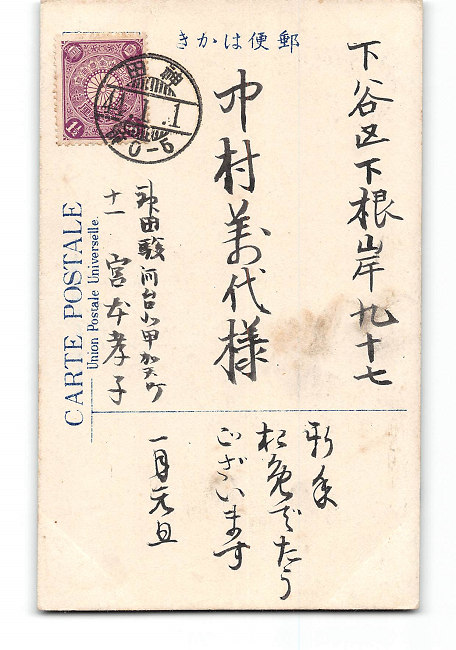 郵便はかき
下谷区下根岸九十七
中村美代様
神田駿河台小甲加天町
十一 宮本孝子
CARTE POSTALE
Union Postale Universelle.
神田
44.1.1
0-5
1½
新年
御免でたう
ございます
一月元旦